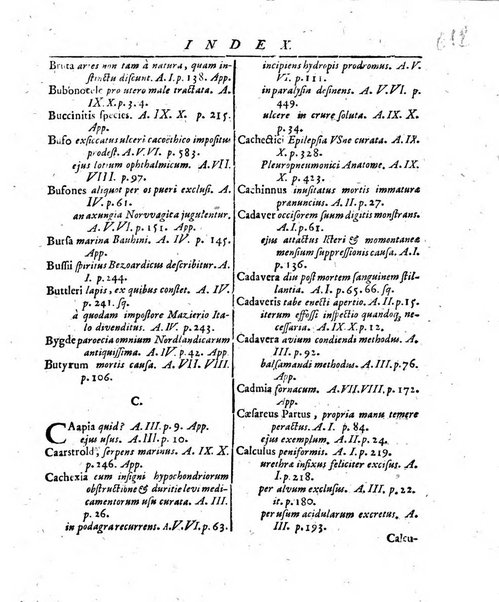 INDEX.
Bruta artes non tam à natura, quam in-
stinctu discunt. A. I. p. 138. App.
Bubonocele pro utero male tractata. A.
IX. X. p. 3. 4.
Buccinitis species. A. IX. X. p. 215.
App.
Bufo exsiccatus ulceri cacoëthico impositus
prodest. A. V. VI. p. 583.
ejus lotium ophthalmicum. A. VII.
VIII. p. 97.
Bufones aliquot per os pueri exclusi. A.
IV. p. 61.
an axungia Norvvagica jugulentur.
A. V. VI. p. 151. App.
Bursa marina Bauhini. A. IV. p. 145.
App.
Bussii spiritus Bezoardicus describitur. A.
I. p. 244.
Buttleri lapis, ex quibus constet. A. IV.
p. 241. sq.
à quodam impostore Mazierio Ita-
lo divenditus. A. IV. p. 243.
Bygde paroecia omnium Nordlandicarum
antiquissima. A. IV. p. 42. App.
Butyrum mortis causa. A. VII. VIII.
p. 106.
C.
CAapia quid? A. III. p. 9. App.
ejus usus. A. III. p. 10.
Caarstrold, serpens marinus. A. IX. X.
p. 246. App.
Cachexia cum insigni hypochondriorum
obstructione & duritie levi medi-
camentorum usu curata. A. III.
p. 26.
in podagra recurrens. A. V. VI. p. 63.
incipiens hydropis prodromus. A. V.
VI. p. 111.
in paralysin desinens. A. V. VI. p.
449.
ulcere in crure soluta. A. IX. X.
p. 34.
Cachectici Epilepsia VSne curata. A. IX.
X. p. 328.
Pleuropneumonici Anatome. A. IX.
X. p. 423.
Cachinnus inusitatus mortis immaturæ
prænuncius. A. II. p. 27.
Cadaver occisorem suum digitis monstrans.
A. I. p. 61.
ejus attactus Icteri & momentaneæ
mensium suppressionis causa. A. I.
p. 136.
Cadavera diu post mortem sanguinem stil-
lantia. A. I. p. 65. 66. sq.
Cadaveris tabe enecti apertio. A. II. p. 15.
iterum effossi inspectio quandoq; ne-
cessaria. A. IX. X. p. 12.
Cadavera avium condiendi methodus. A.
III. p. 92.
balsamandi methodus. A. III. p. 76.
App.
Cadmia fornacum. A. VII. VIII. p. 172.
App.
Cæsareus Partus, propria manu temere
peractus. A. I. p. 84.
ejus exemplum. A. II. p. 24.
Calculus peniformis. A. I. p. 219.
urethræ infixus feliciter excisus. A.
I. p. 218.
per alvum exclusus. A. III. p. 22.
it. p. 180.
per usum acidularum excretus. A.
III. p. 193.
Calcu-